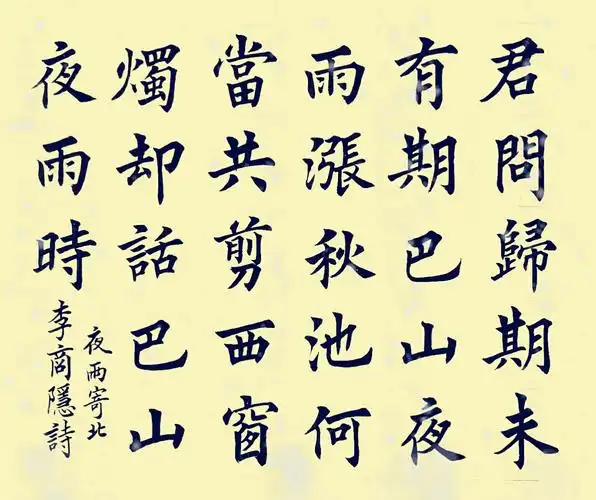 君問歸期未
有期巴山夜
雨漲秋池何
當共剪西窗
燭却話巴山
夜雨時
夜雨寄北
李商隱詩